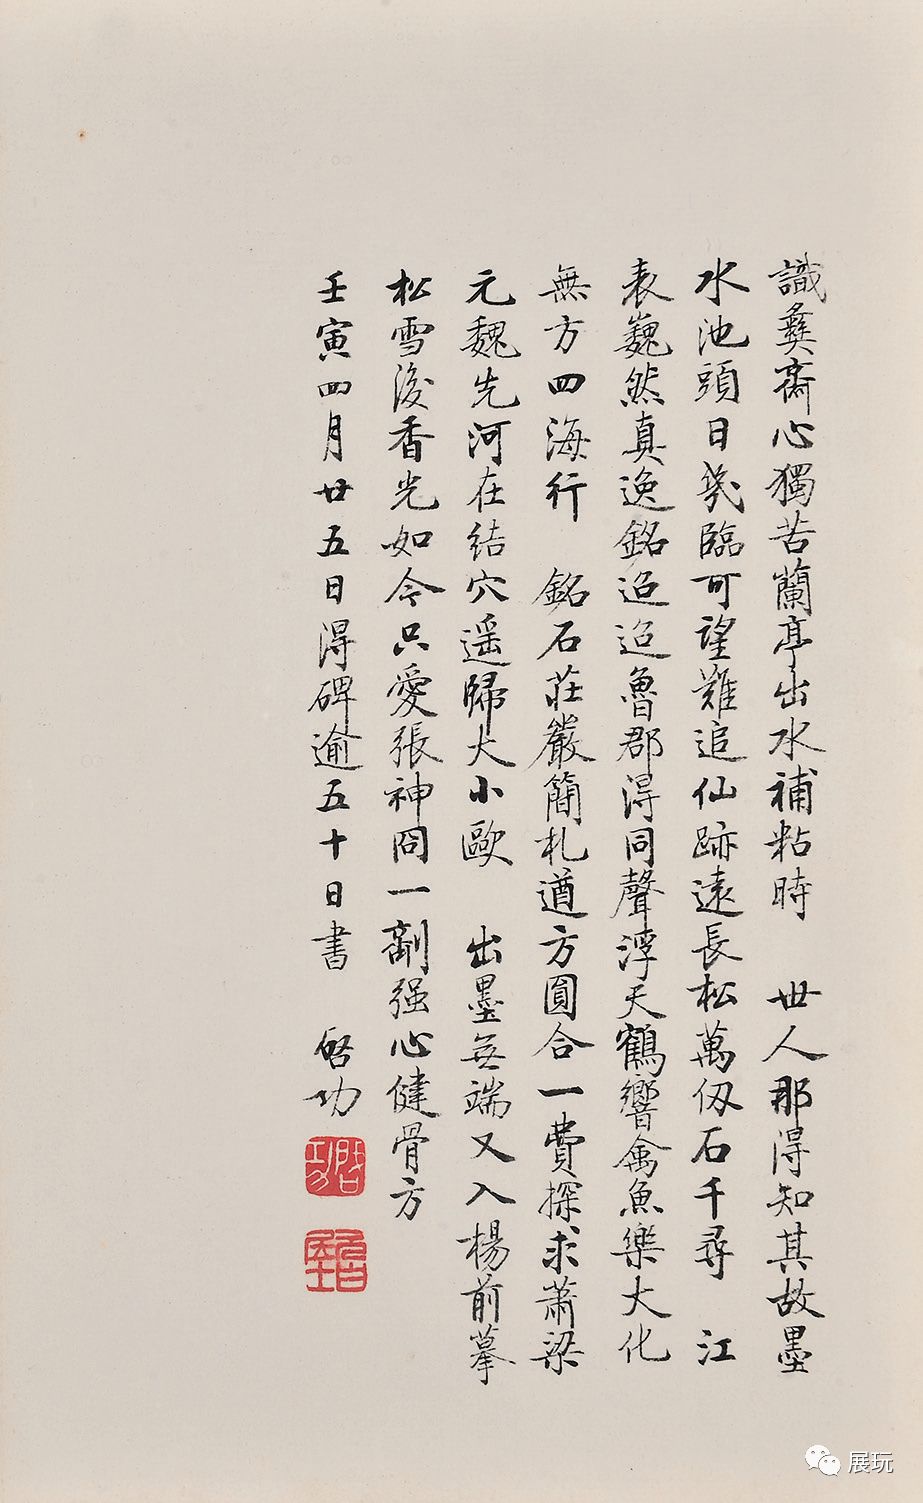 識彝齋心獨苦蘭亭出水補粘時　世人那得知其故墨
水池頭日幾臨可望難追仙跡遠長松萬仭石千尋　江
表巍然真逸銘迢迢魯郡得同聲浮天鶴響禽魚樂大化
無方四海行　銘石莊嚴簡札遒方圓合一費探求蕭梁
元魏先河在結穴遥歸大小歐　出墨無端又入楊前摹
松雪後香光如今只愛張神冏一劑强心健骨方
壬寅四月廿五日得碑逾五十日書　啓功
啓功
展玩